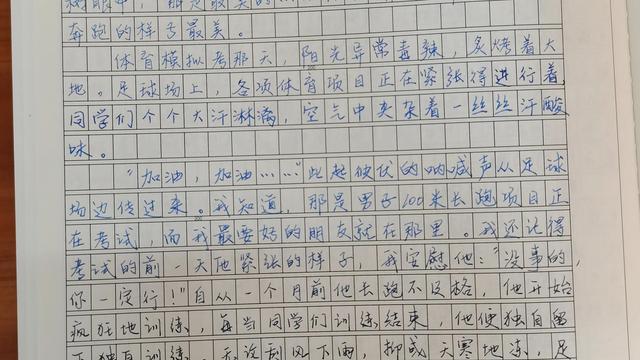 奔跑的样子最美。
体育模拟考那天，阳光异常毒辣，炙烤着大
地。足球场上，各项体育项目正在紧张得进行着，
同学们个个大汗淋漓，空气中夹杂着一丝丝汗酸
味。
“加油，加油……”此起彼伏的呐喊声从足球
场边传过来。我知道，那是男子1000米长跑项目正
在考试，而我最要好的朋友就在那里。我还记得
考试的前一天他紧张的样子，我安慰他：“没事的，
你一定行！”自从一个月前他长跑不及格，他开始
疯狂地训练，每当同学们训练结束，他便独自留
下独自训练，无论刮风下雨，抑或天寒地冻，足